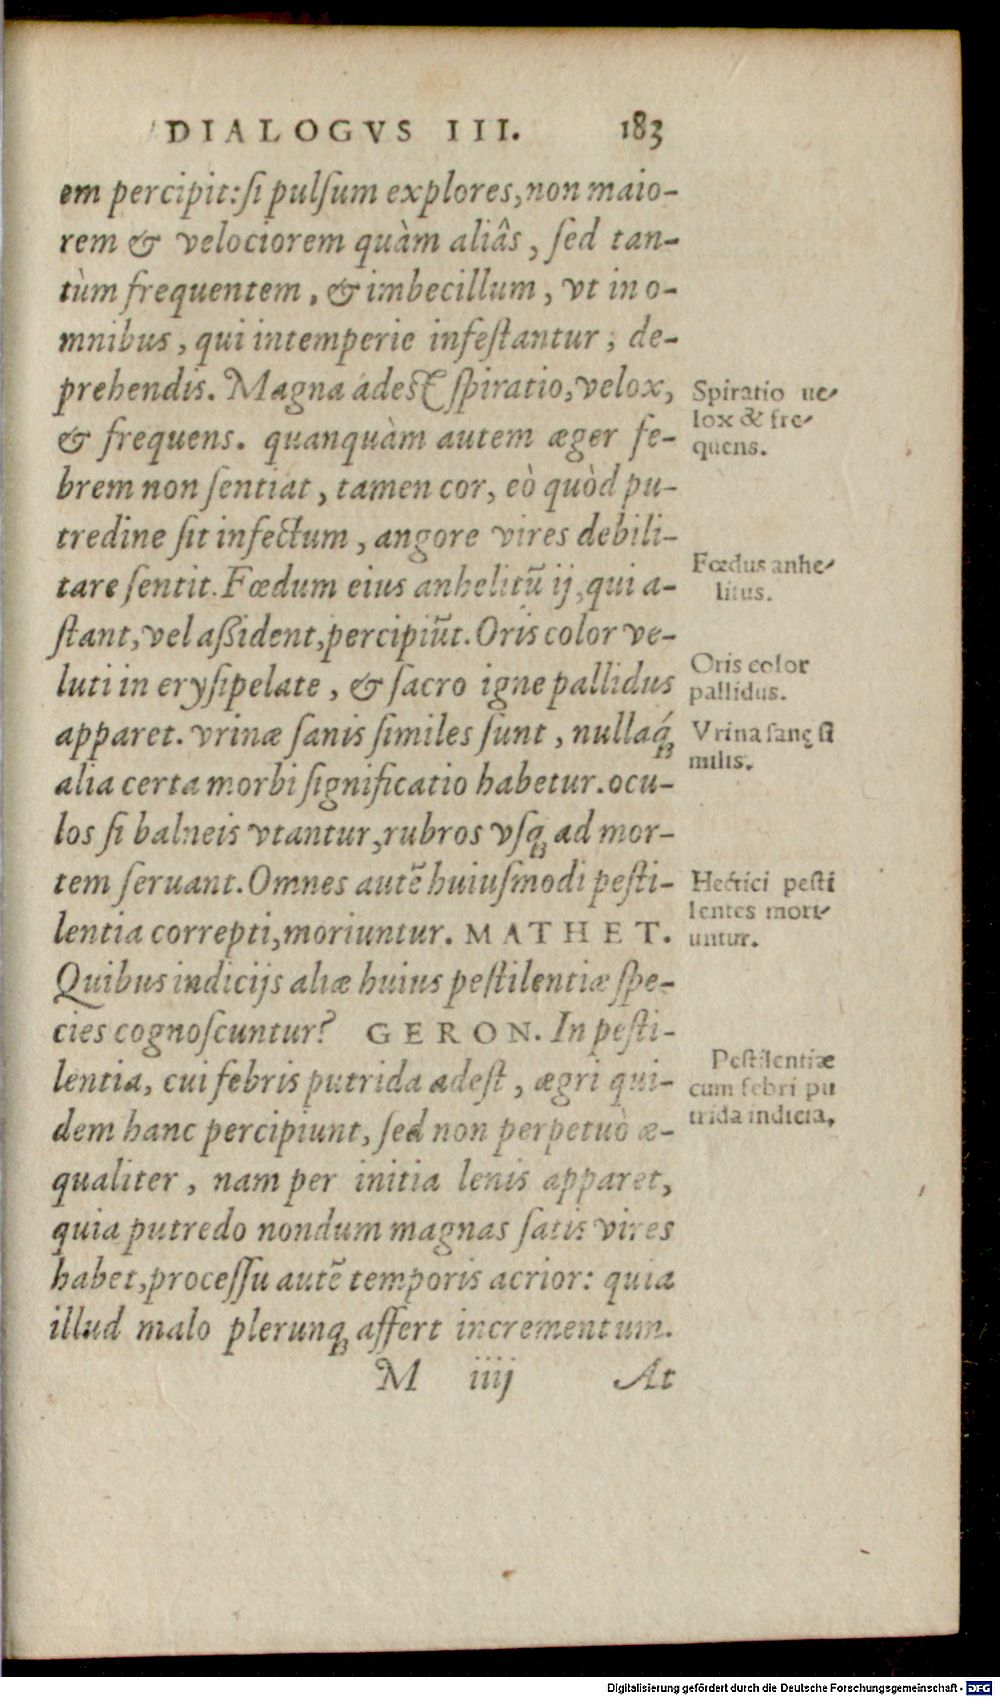 DIALOGVS III. 183
em percipit: ſi pulſum explores, non maio-
rem & velociorem quàm aliâs, ſed tan-
tùm frequentem, & imbecillum, vt in o-
mnibus, qui intemperie infeſtantur, de-
prehendis. Magna adest ſpiratio, velox,
& frequens. quanquàm autem æger fe-
brem non ſentiat, tamen cor, eò quòd pu-
tredine ſit infectum, angore vires debili-
tare ſentit. Fœdum eius anhelitū ij, qui a-
ſtant, vel aßident, percipiūt. Oris color ve-
luti in eryſipelate, & ſacro igne pallidus
apparet. vrinæ ſanis ſimiles ſunt, nullaq́ꝫ
alia certa morbi ſignificatio habetur. ocu-
los ſi balneis vtantur, rubros vſqꝫ ad mor-
tem ſeruant. Omnes autē huiuſmodi peſti-
lentia correpti, moriuntur. MATHET.
Quibus indicijs aliæ huius peſtilentiæ ſpe-
cies cognoſcuntur? GERON. In peſti-
lentia, cui febris putrida adeſt, ægri qui-
dem hanc percipiunt, ſed non perpetuò æ-
qualiter, nam per initia lenis apparet,
quia putredo nondum magnas ſatis vires
habet, proceſſu autē temporis acrior: quia
illud malo plerunqꝫ affert incrementum.
M iiij At
Spiratio ue-
lox & fre-
quens.
Fœdus anhe-
litus.
Oris color
pallidus.
Vrina ſanę ſi
milis.
Hectici peſti
lentes mori-
untur.
Peſtilentiæ
cum febri pu
trida indicia.
Digitalisierung gefördert durch die Deutsche Forschungsgemeinschaft - DFG